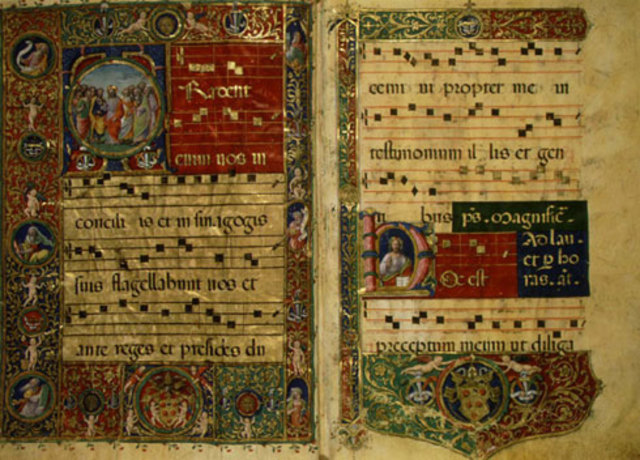 TRadent
enim uos in
concili is et in sinagogis
suis flagellabunt uos et
ante reges et presides du
cemi ni propter me in
testimonium il lis et gen
ti bus ps. Magnifiē.
Ad lau.
et p ho
ras. añ.
HOc est
preceptum meum ut diliga